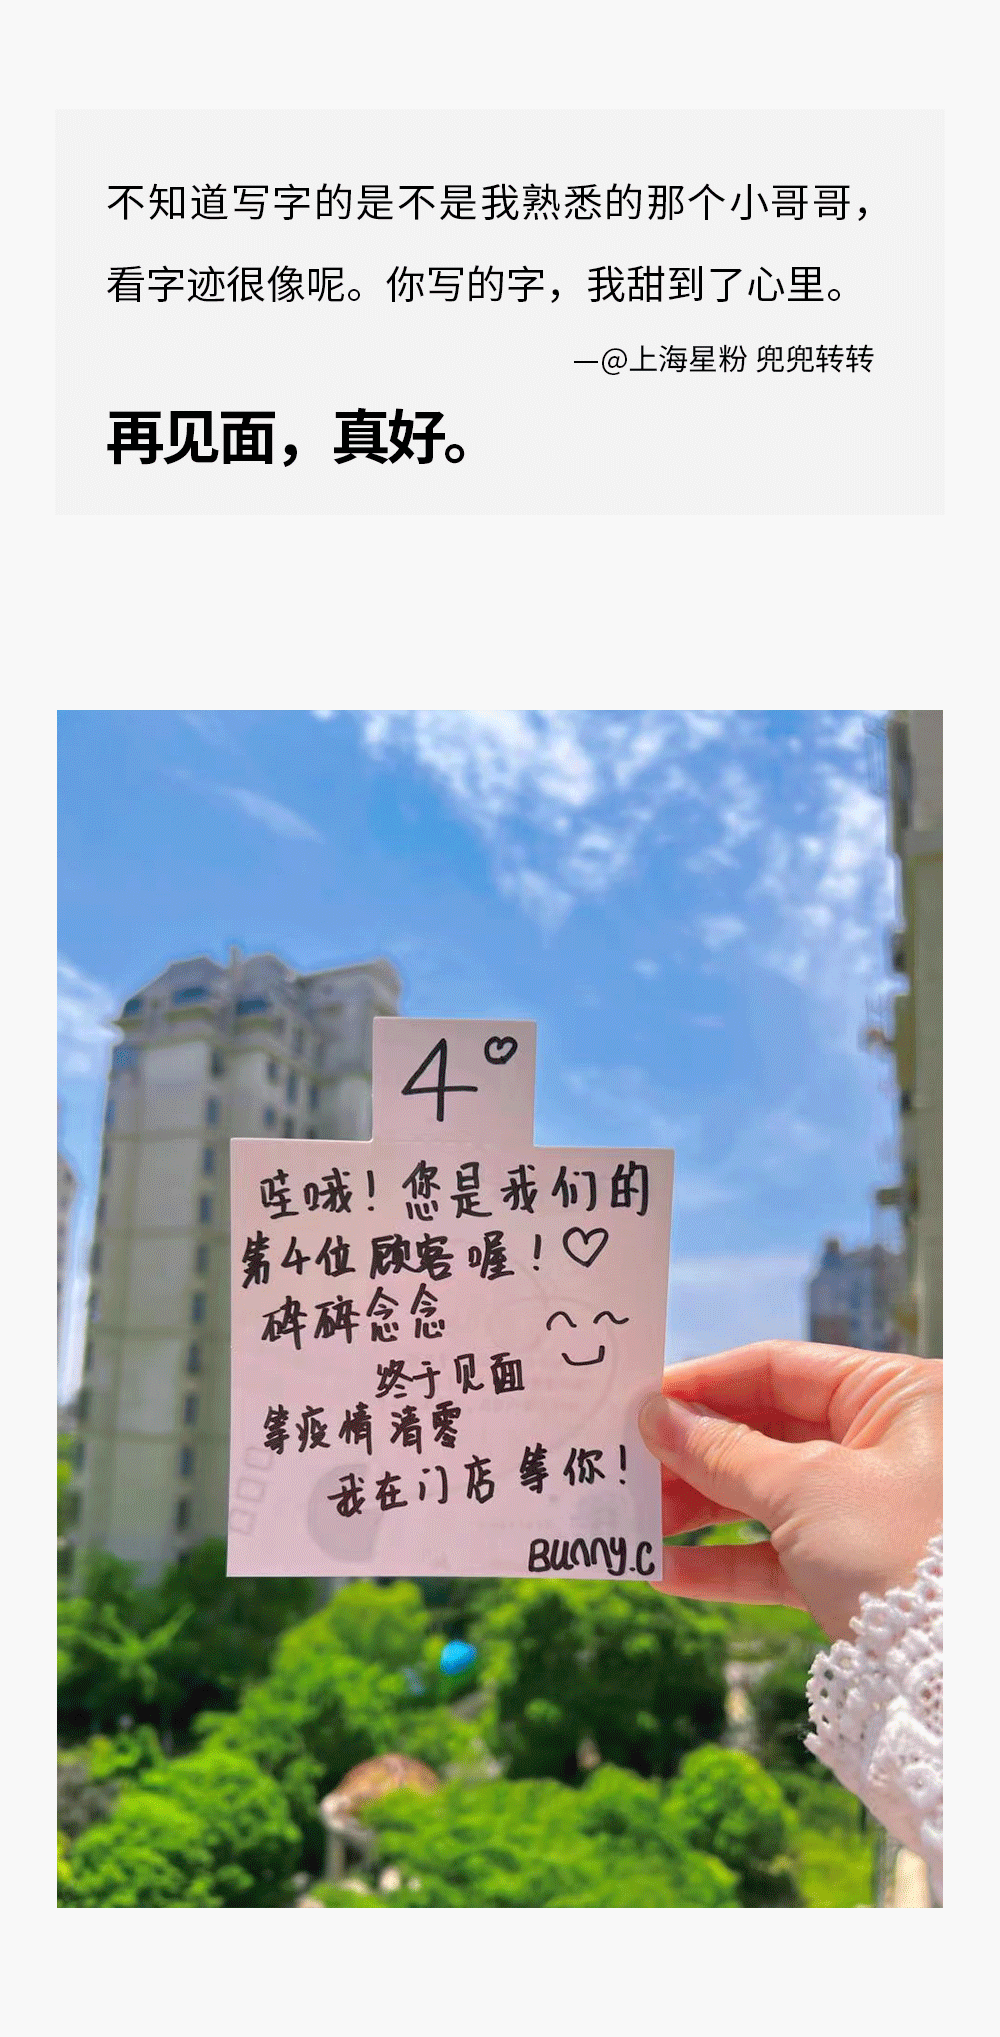 不知道写字的是不是我熟悉的那个小哥哥，
看字迹很像呢。你写的字，我甜到了心里。
—@上海星粉 兜兜转转
再见面，真好。
4
哇哦！您是我们的
第4位顾客喔！
碎碎念念
终于见面
等疫情清零
我在门店等你！
Bunny.C